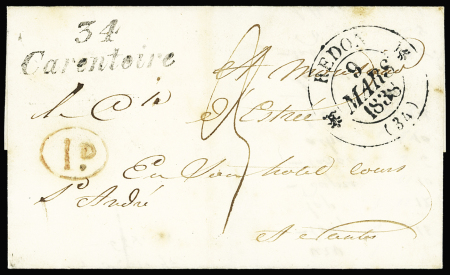 34
Carentoire
REDON
9
MARS
1838
(34)
A Monsieur
d'Estrée
1D
En son hotel cours
St André
A Nantes